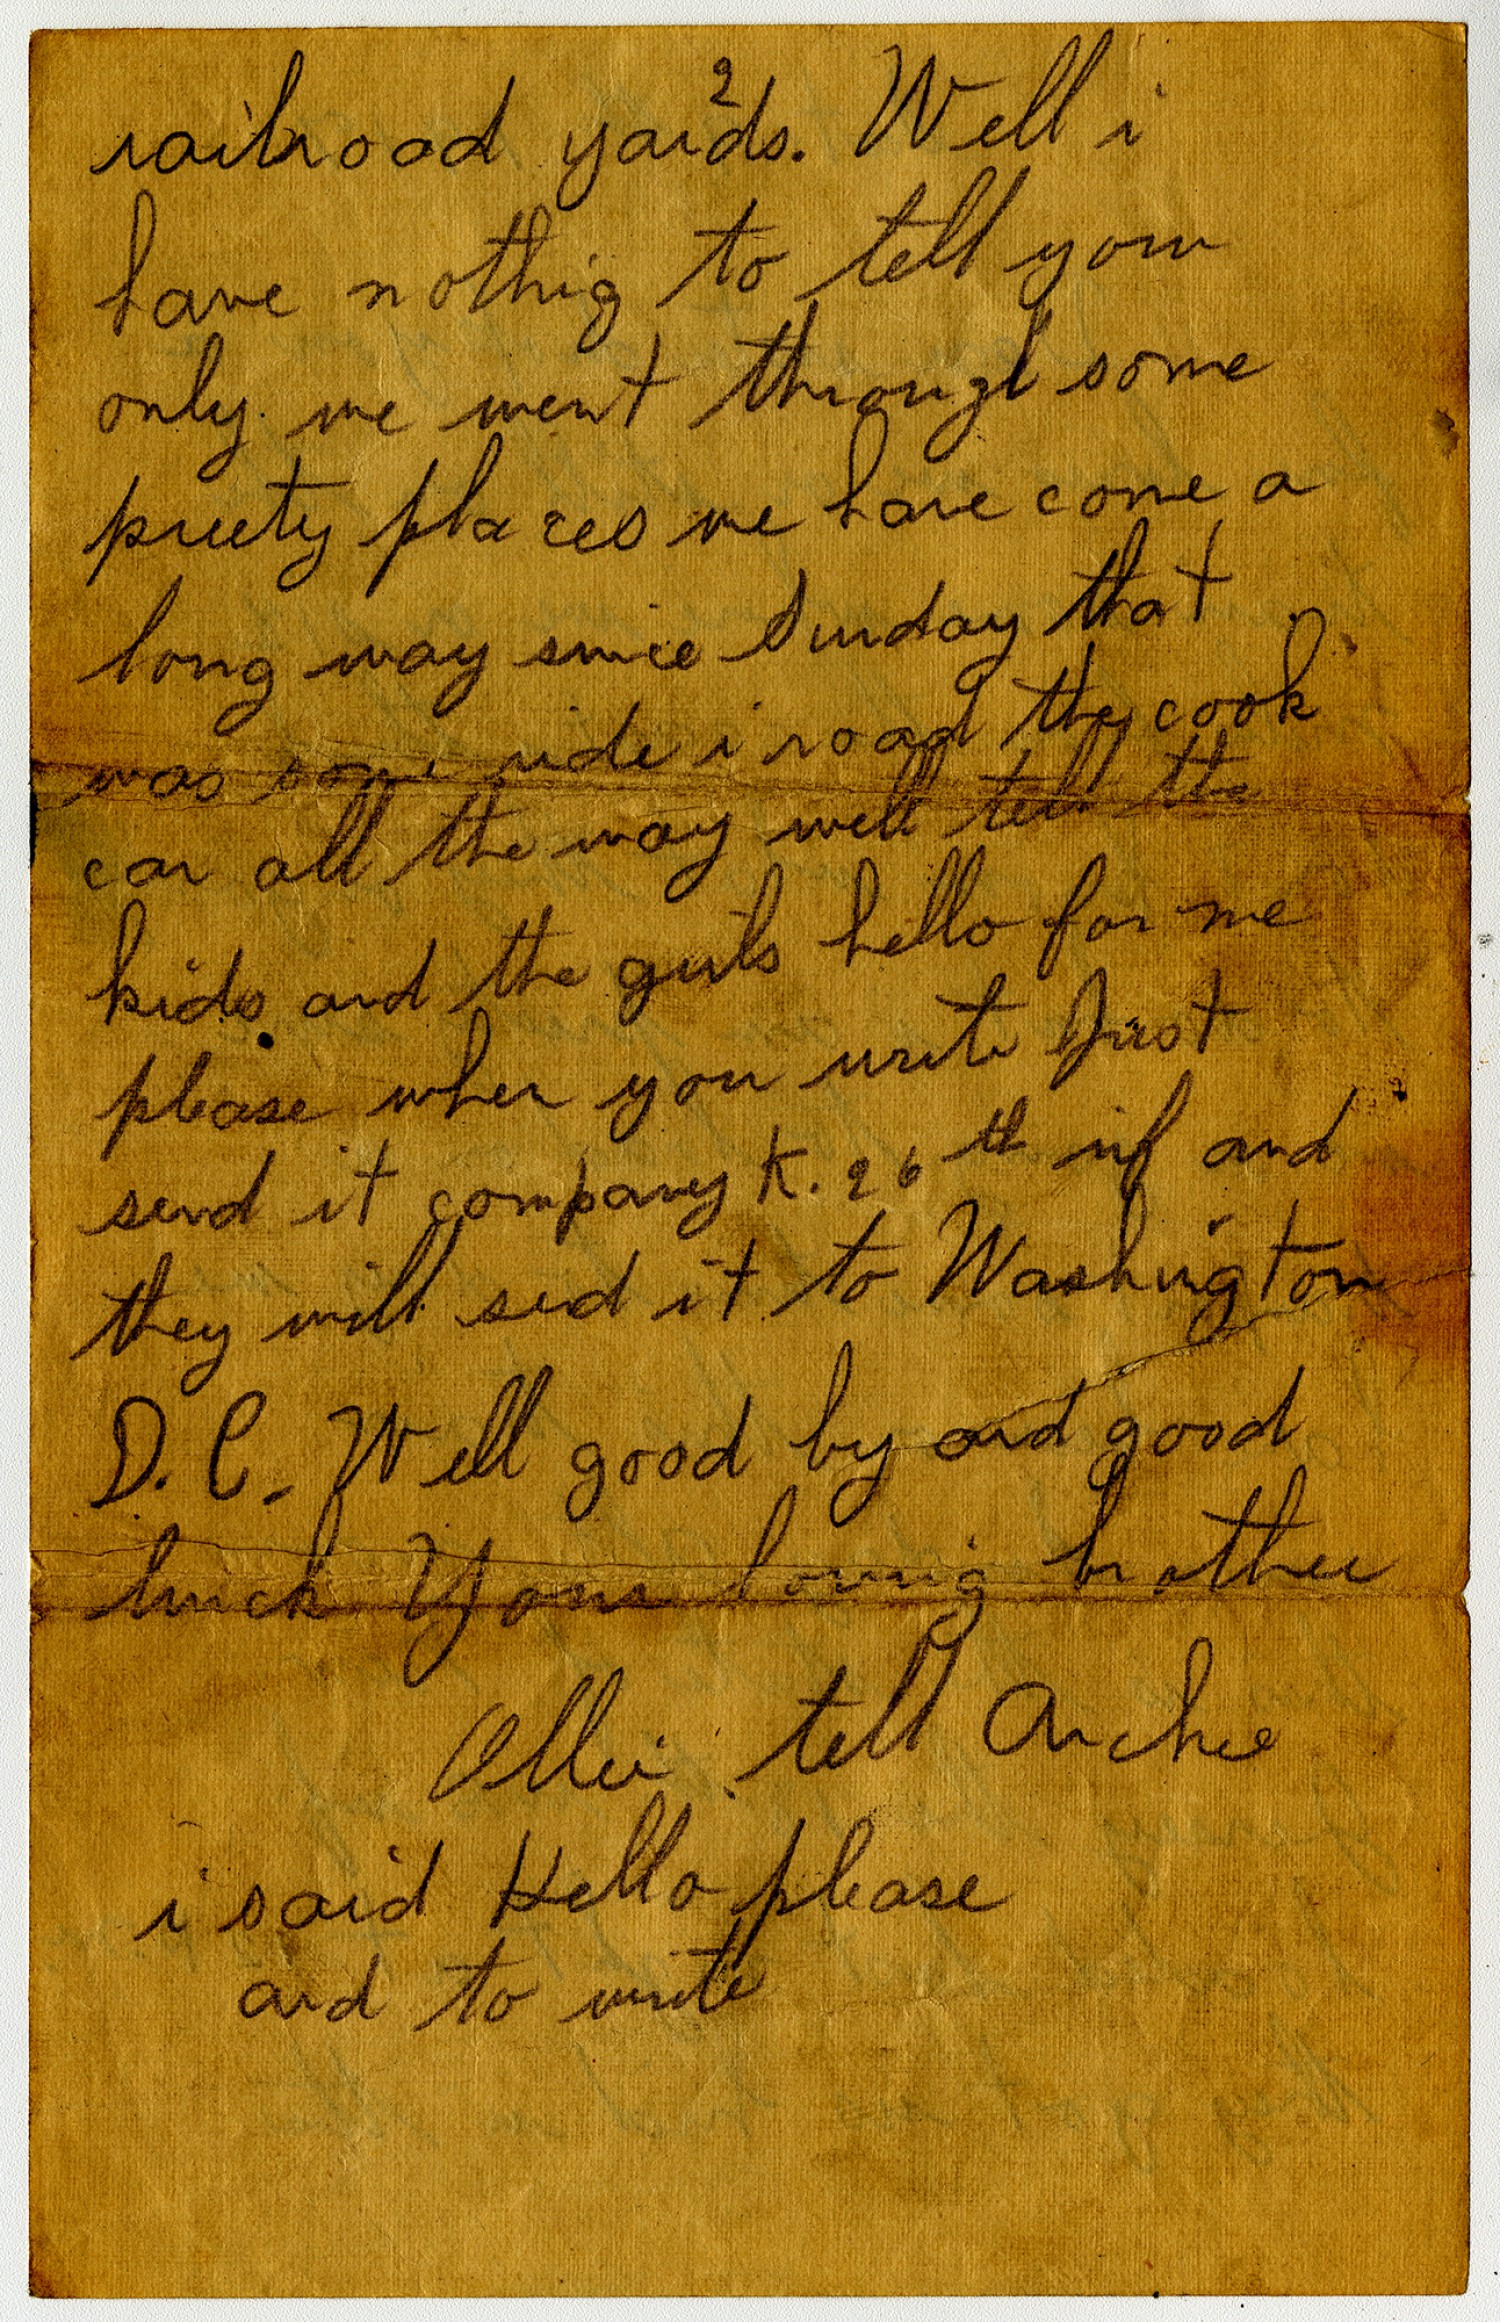 2
railroad yards. Well i
have nothig to tell you
only we went through some
preety places we have come a
long way since Sunday that
was some ride i road the cook
car all the way well tell the
kids and the girls hello for me
please when you write first
send it company K. 26th inf and
they will send it to Washington
D. C. Well good by and good
luck Your loving brother
Ollie tell Archie
i said Hello please
and to write